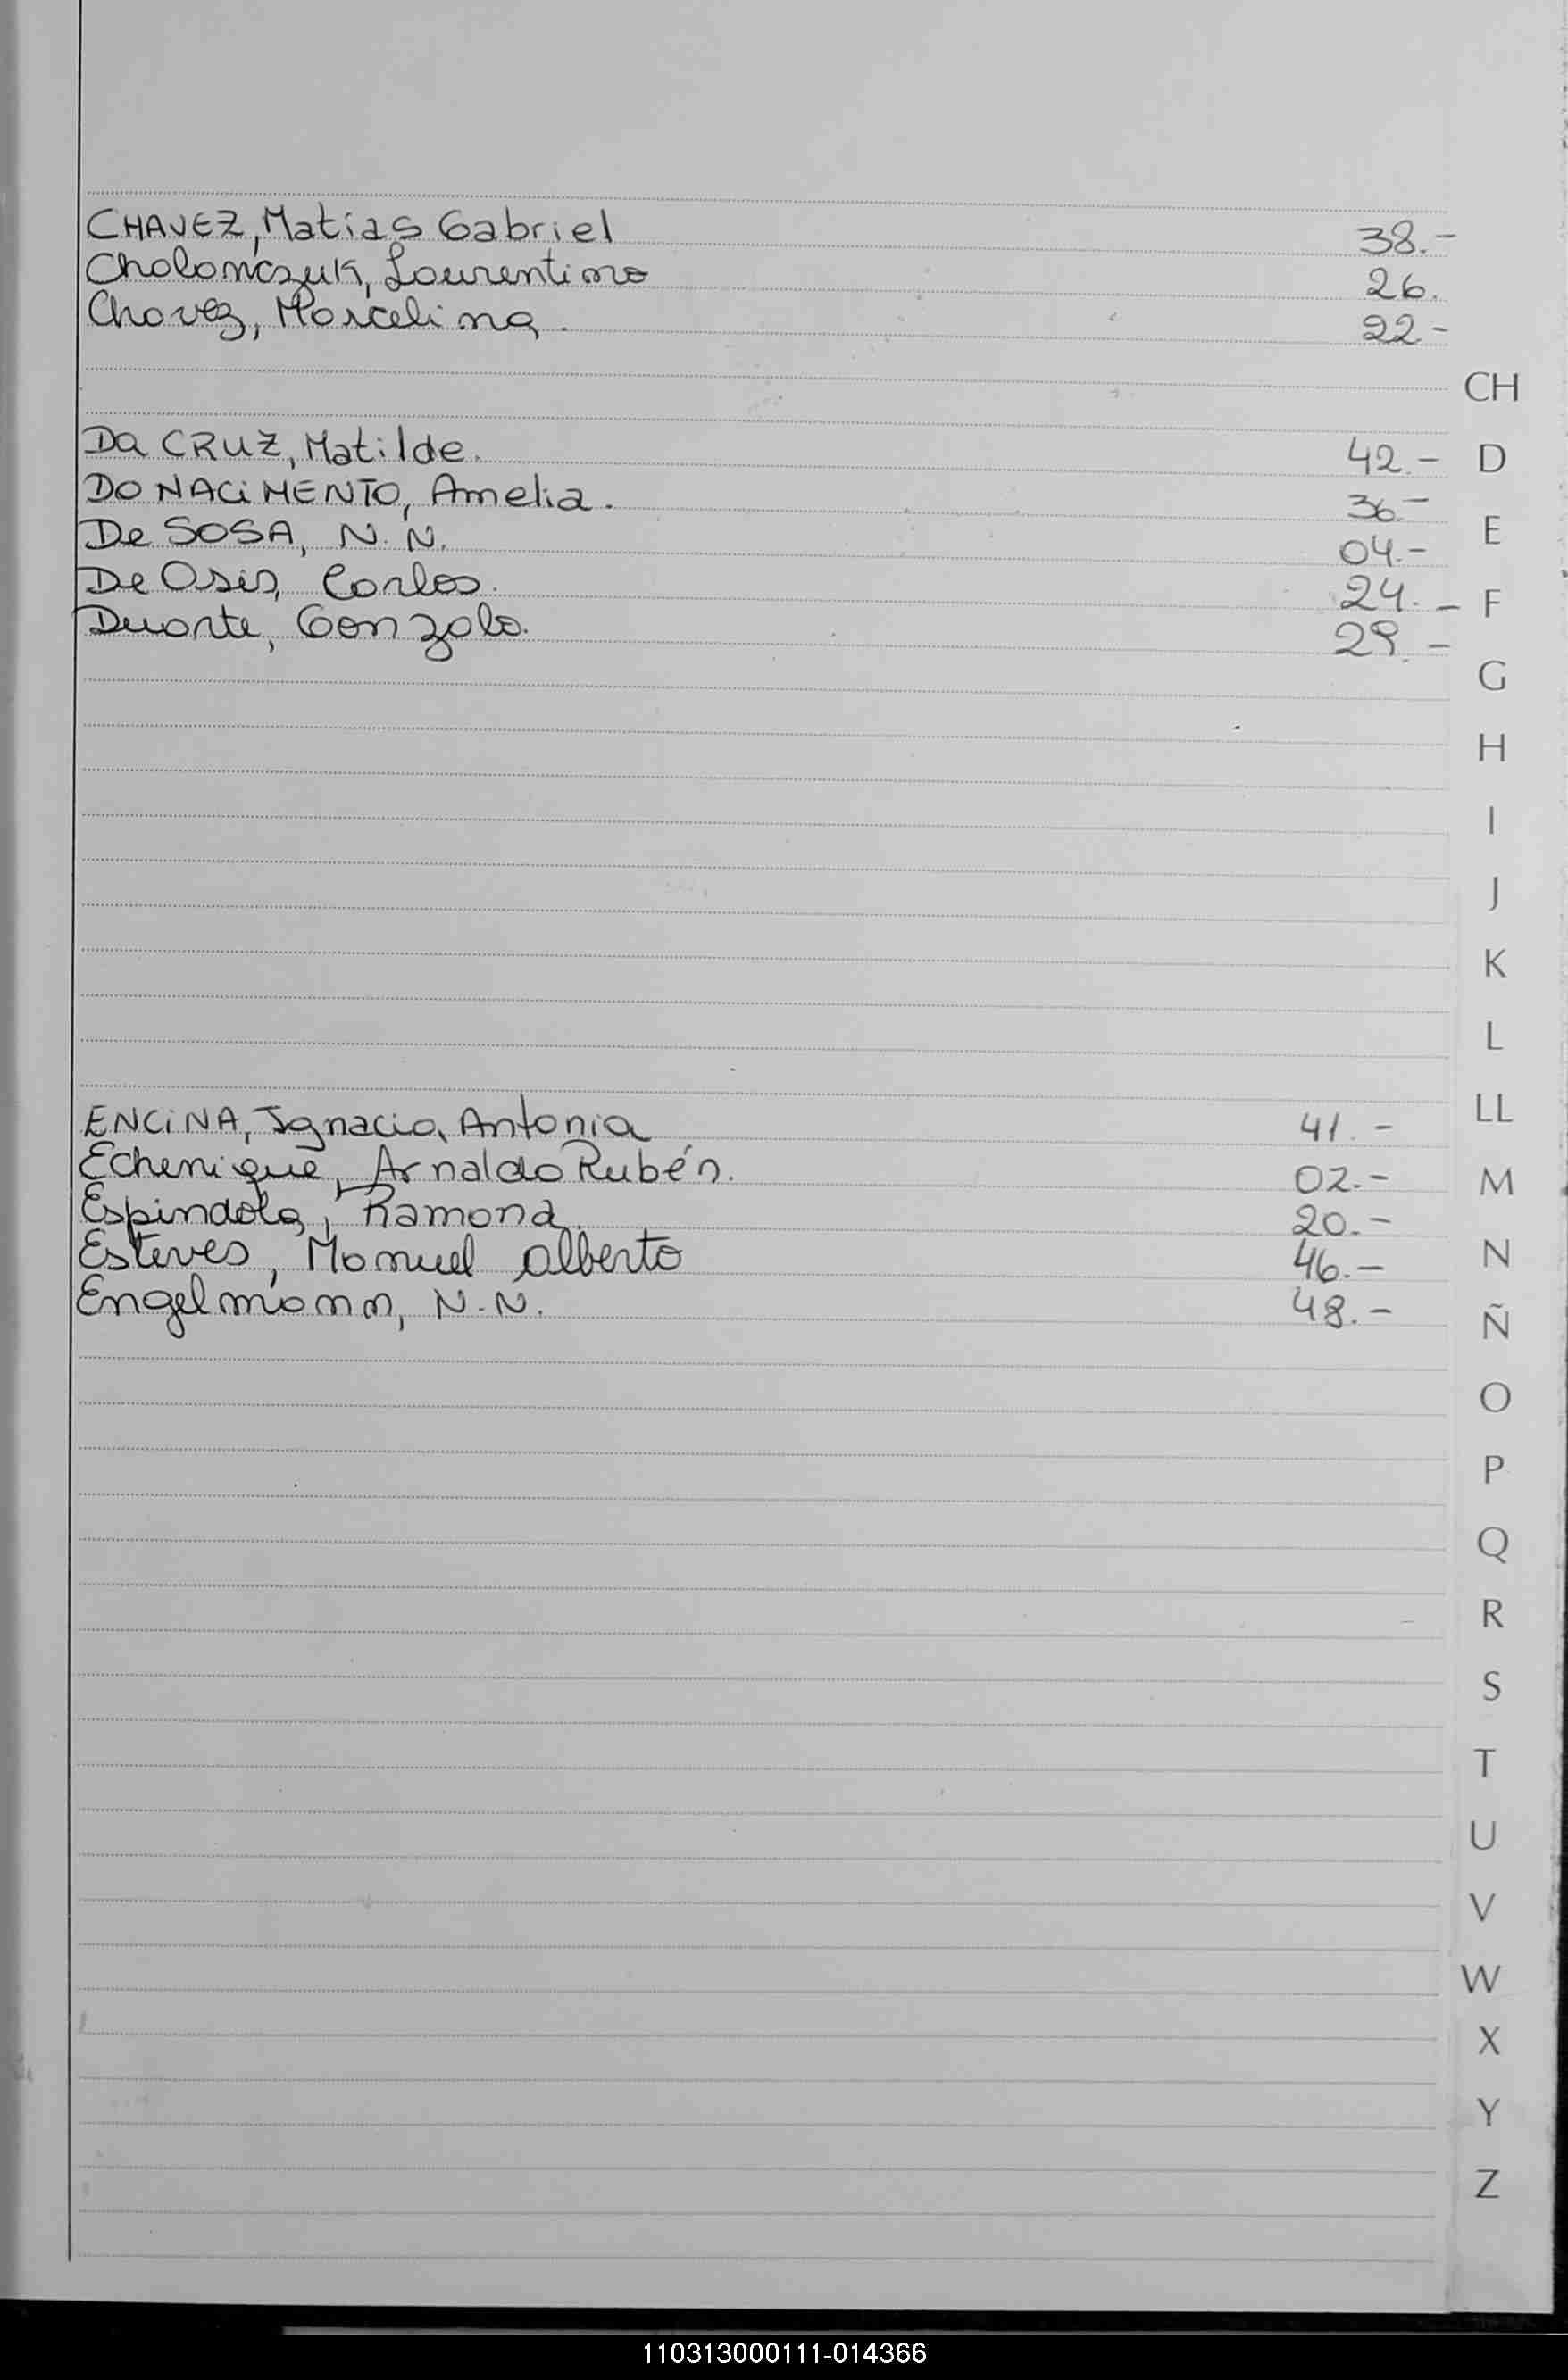 CHAVEZ, Matias Gabriel 38.-
Cholonczuk, Laurentino 26.
Chavez, Marcelina. 22-
CH
Da CRUZ, Matilde. 42.- D
DO NACiMENTO, Amelia. 36.-
E
De SOSA, N. N. 04.-
De Asis, Carlos. 24.- F
Duarte, Gonzalo. 29.-
G
H
I
J
K
L
LL
ENCiNA, Ignacia, Antonia 41.-
Echenique, Arnaldo Rubén. 02.- M
Espindola, Ramona. 20.-
Esteves, Manuel Alberto 46.- N
Engelmann, N.N. 48.-
Ñ
O
P
Q
R
S
T
U
V
W
X
Y
Z
110313000111-014366